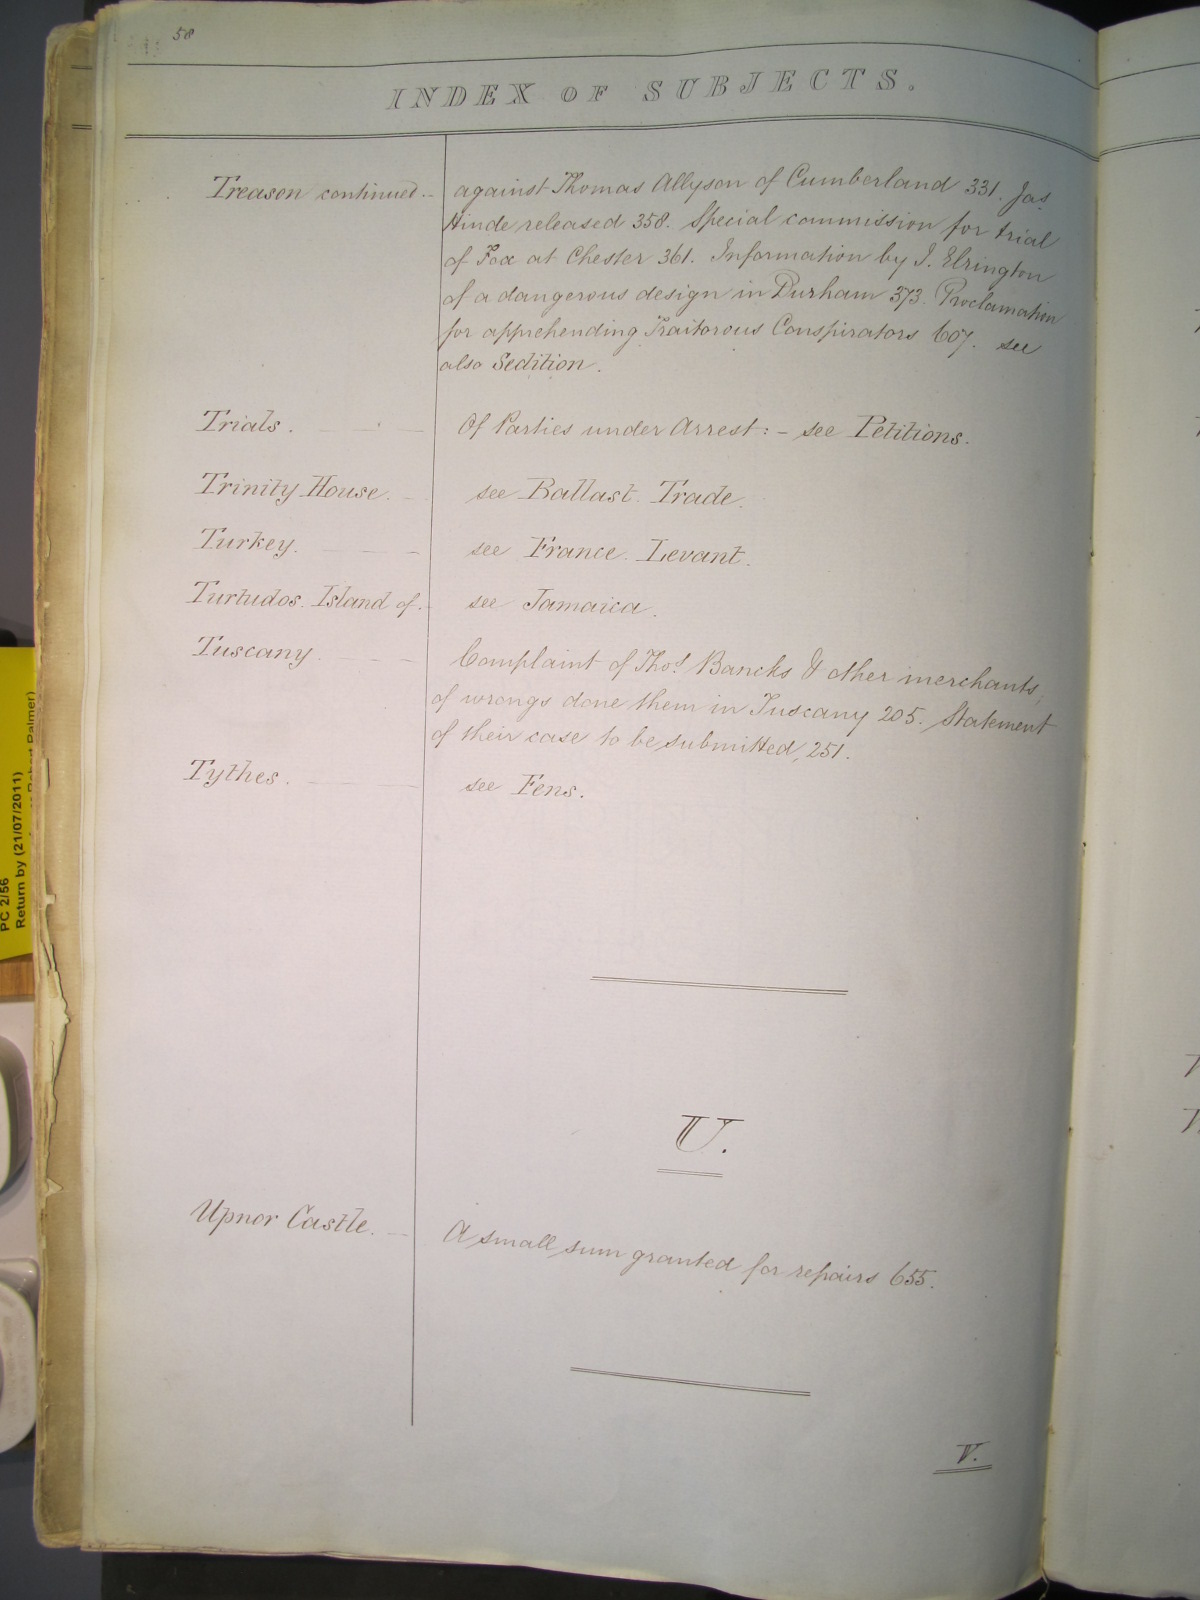 58
INDEX OF SUBJECTS.
Treason continued.. against Thomas Allyson of Cumberland 331. Jas.
Hinde released 358. Special commission for trial
of Fox at Chester 361. Information by J. Elrington
of a dangerous design in Durham 373. Proclamation
for apprehending Traitorous Conspirators 607. see
also Sedition.
Trials. Of Parties under Arrest: - see Petitions.
Trinity House. see Ballast. Trade.
Turkey. see France. Levant.
Turtudos. Island of. see Jamaica.
Tuscany. Complaint of Thos. Bancks & other merchants,
of wrongs done them in Tuscany 205. Statement
of their case to be submitted, 251.
Tythes. see Fens.
U.
Upnor Castle. A small sum granted for repairs 655.
V.
PC 2/56
Return by (21/07/2011)
Robert Palmer)